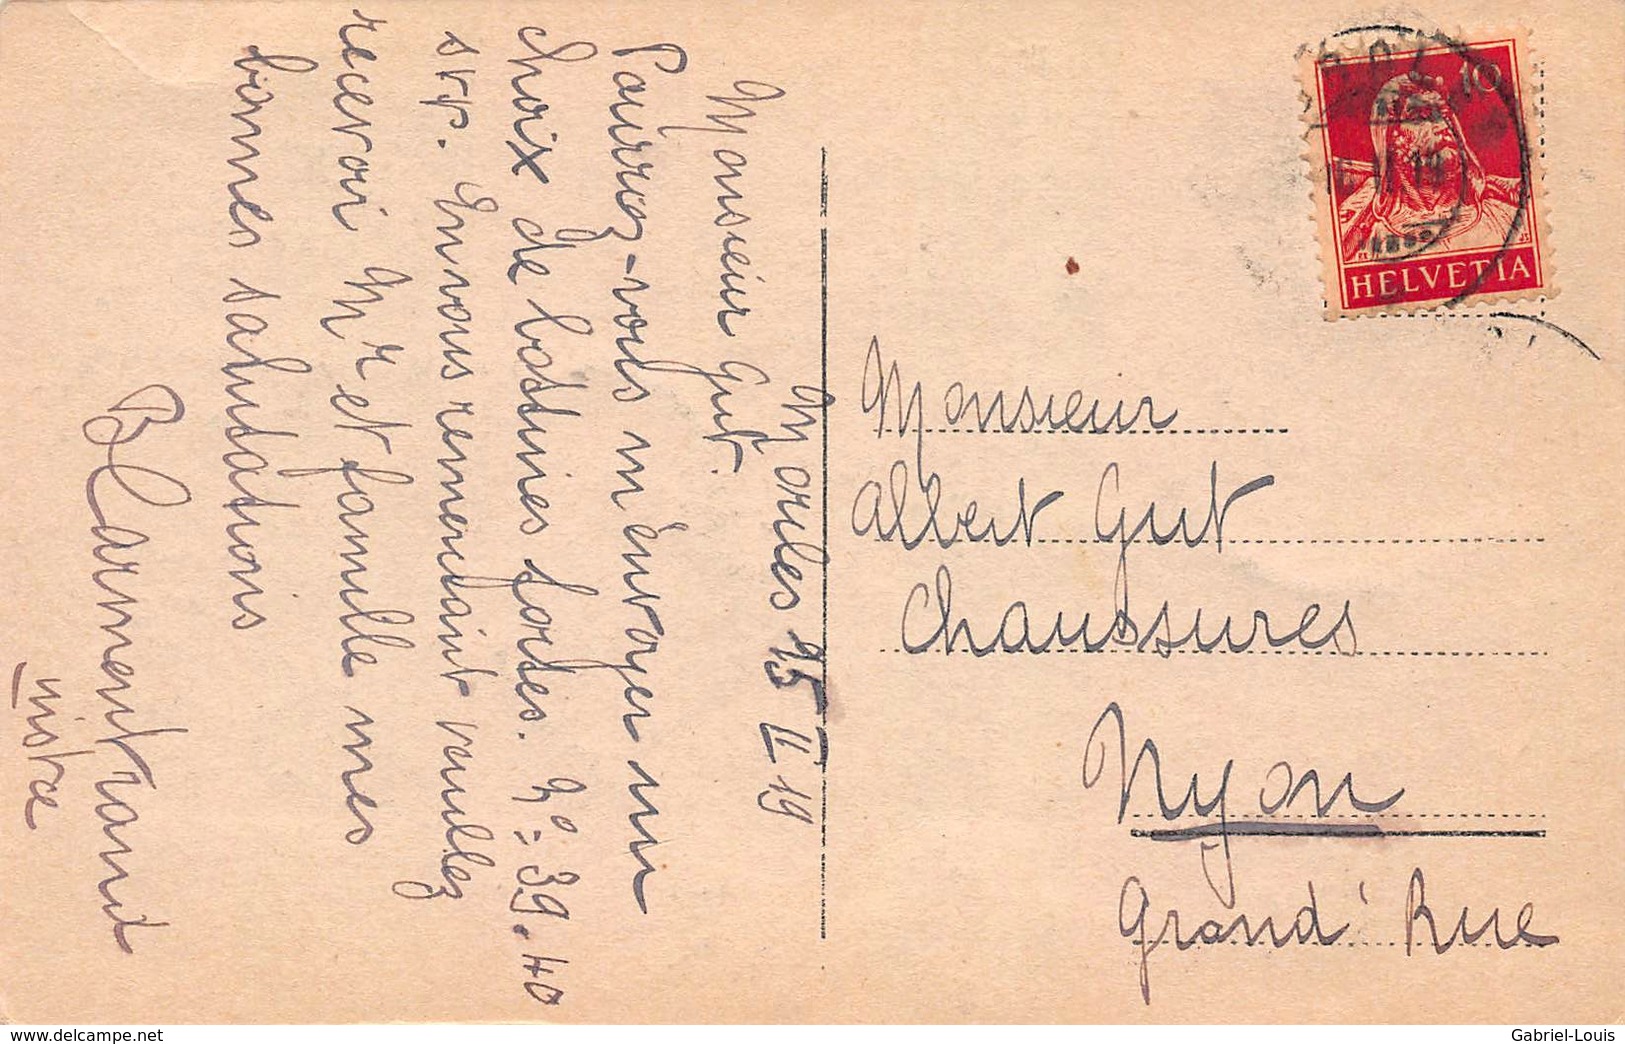 Marles 15 II 19
Monsieur Gut.
Pourriez-vous m'envoyer un
choix de bottines fortes. No = 39.40
svp. En vous remerciant veuillez
recevoir Mr et famille mes
bonnes salutations
B Larmentrand
10
HELVETIA
Monsieur
Albert Gut
Chaussures
Nyon
Grand'Rue
delcampe.net
Gabriel-Louis